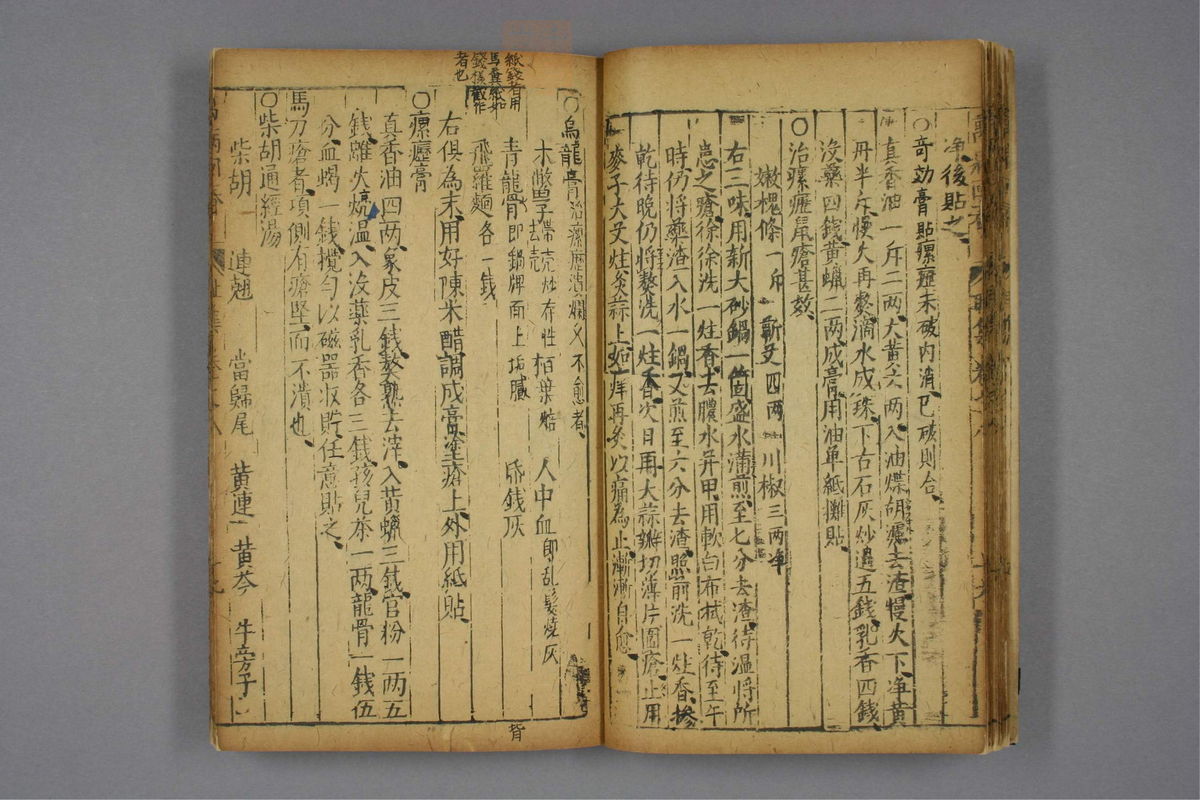 净後貼之
○奇効膏貼瘰癧未破内消已破則合
真香油一斤二两大黄六两入油煠胡濾去渣慢火下净黄
丹半斤慢火再熬滴水成珠下古石灰炒過五錢乳香四錢
没藥四錢黄蠟二两成膏用油单紙攤貼
○治瘰癧鼠瘡甚效
嫩槐條一斤 蘄艾四两 川椒三两净
右三味用新大砂鍋一箇盛水滿煎至七分去渣待温將所
患之瘡徐徐洗一炷香去膿水并甲用軟白布拭乾待至午
時仍将藥渣入水一鍋又煎至六分去渣照前洗一炷香
乾待晚仍将熬洗一炷香次日再用大蒜瓣切薄片圍瘡止用
麥子大艾炷灸蒜上如痒再灸以痛為止漸漸自愈
○烏龍膏治瘰癧潰爛久不愈者
木鱉子帶壳炒存性去壳 栢葉焙 人中血即乱髮燒灰
青龍骨即鍋牌面上垢膩 紙錢灰
飛羅麵各一錢
紙錢有用
馬糞紙如
錢樣截作
者也
右俱為末用好陳米醋調成膏塗瘡上外用紙貼
○瘰癧膏
真香油四两象皮三錢熬熟去滓入黄蠟三錢官粉一两五
錢離火亭温入没藥乳香各三錢孩兒茶一两龍骨一錢伍
分血蝎一錢攪匀以磁器收貯任意貼之
馬刀瘡者項側有瘡堅而不潰也
○柴胡通經湯
柴胡 連翹 當歸尾 黄連 黄芩 牛旁子
背